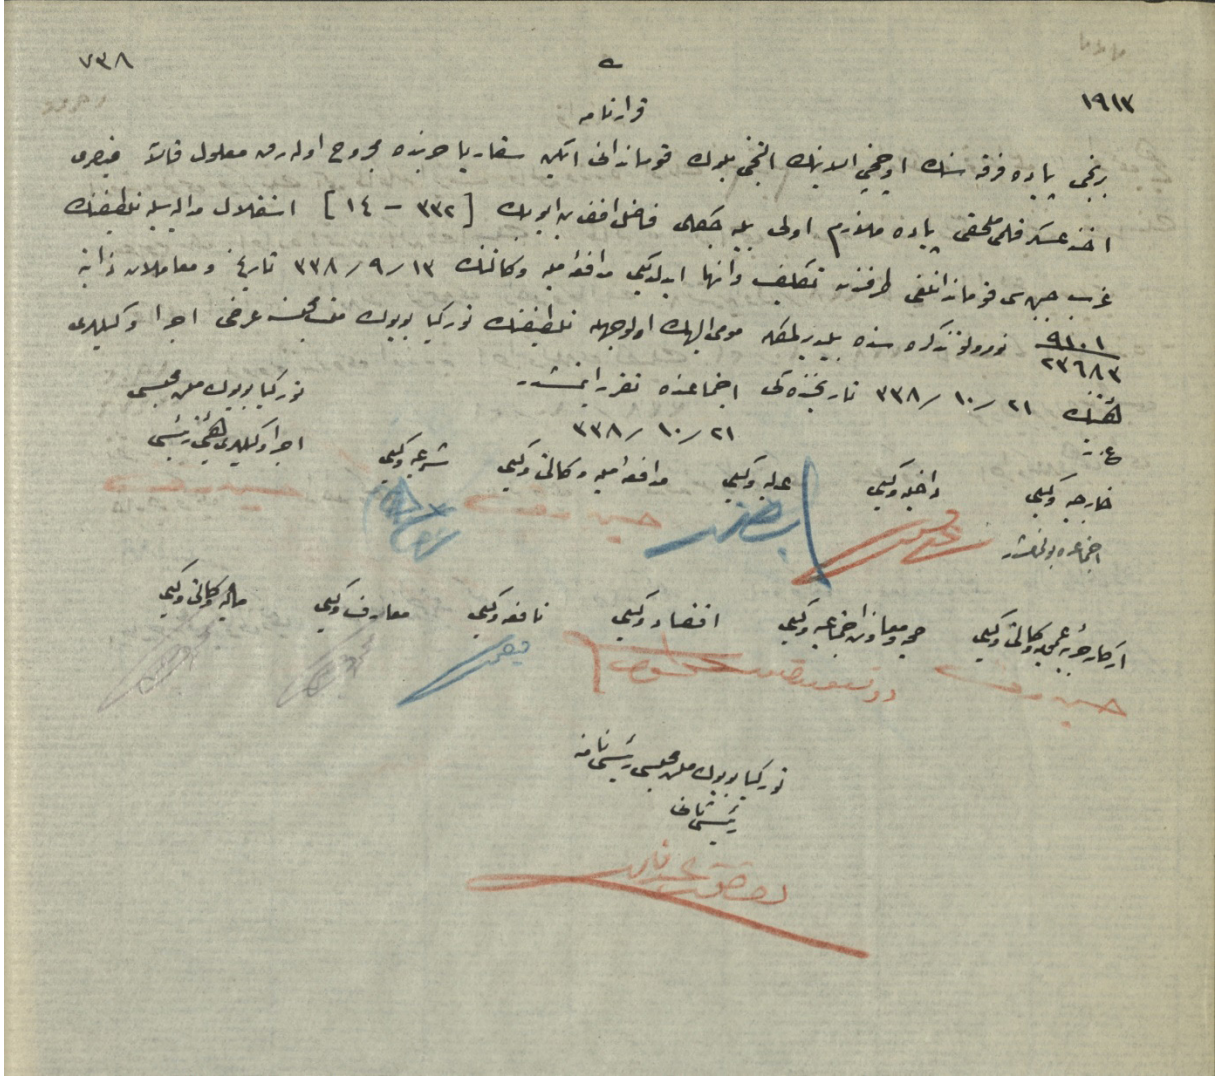 ٧٣٨
١٩١٣
قرارنامه
برنجی پیاده فرقه سنك اوچنجی آلاینك التنجی بلوك قوماندانی ایكن سقاریا حربنده مجروح اوله رق معلول قالان
اخذ عسكر قلمی ملحقی پیاده ملازم اولی بیله جكلی فاضل افندی بن ایوبك [٣٣٢ - ١٤] استقلال مدالیه سیله تلطیفنك
غرب جبهه سی قوماندانلغی طرفندن تكلیف و انها ایدلدیكی مدافعۀ ملیه وكالتنك ١٣/٩/٣٣٨ تاریخ و معاملات ذاتیه
٩١٠١/٢٣٦٨٣ نومرولو تذكره سنده بیلدیرلمكله مومی الیهك اولوجهله تلطیفنك توركیا بویوك ملت مجلسنه عرضی اجرا وكیللری
هیئتنك ٢١/١٠/٣٣٨ تاریخنده كی اجتماعنده تقرر ایتمشدر
٢١/١٠/٣٣٨
ع.ت
توركیا بویوك ملت مجلسی
اجرا وكیللری هیئتی رئیسی
شرعیه وكیلی
مدافعۀ ملیه وكالتی وكیلی
عدلیه وكیلی
داخلیه وكیلی
خارجیه وكیلی
حسین رؤف
حسین رؤف
اجتماعده بولنمشدر
اركان حربیۀ عمومیه وكالتی وكیلی
صحیه و معاونت اجتماعیه وكیلی
اقتصاد وكیلی
نافعه وكیلی
معارف وكیلی
مالیه وكالتی وكیلی
حسین رؤف
توركیا بویوك ملت مجلسی رئیسی نامنه
رئیس ثانی